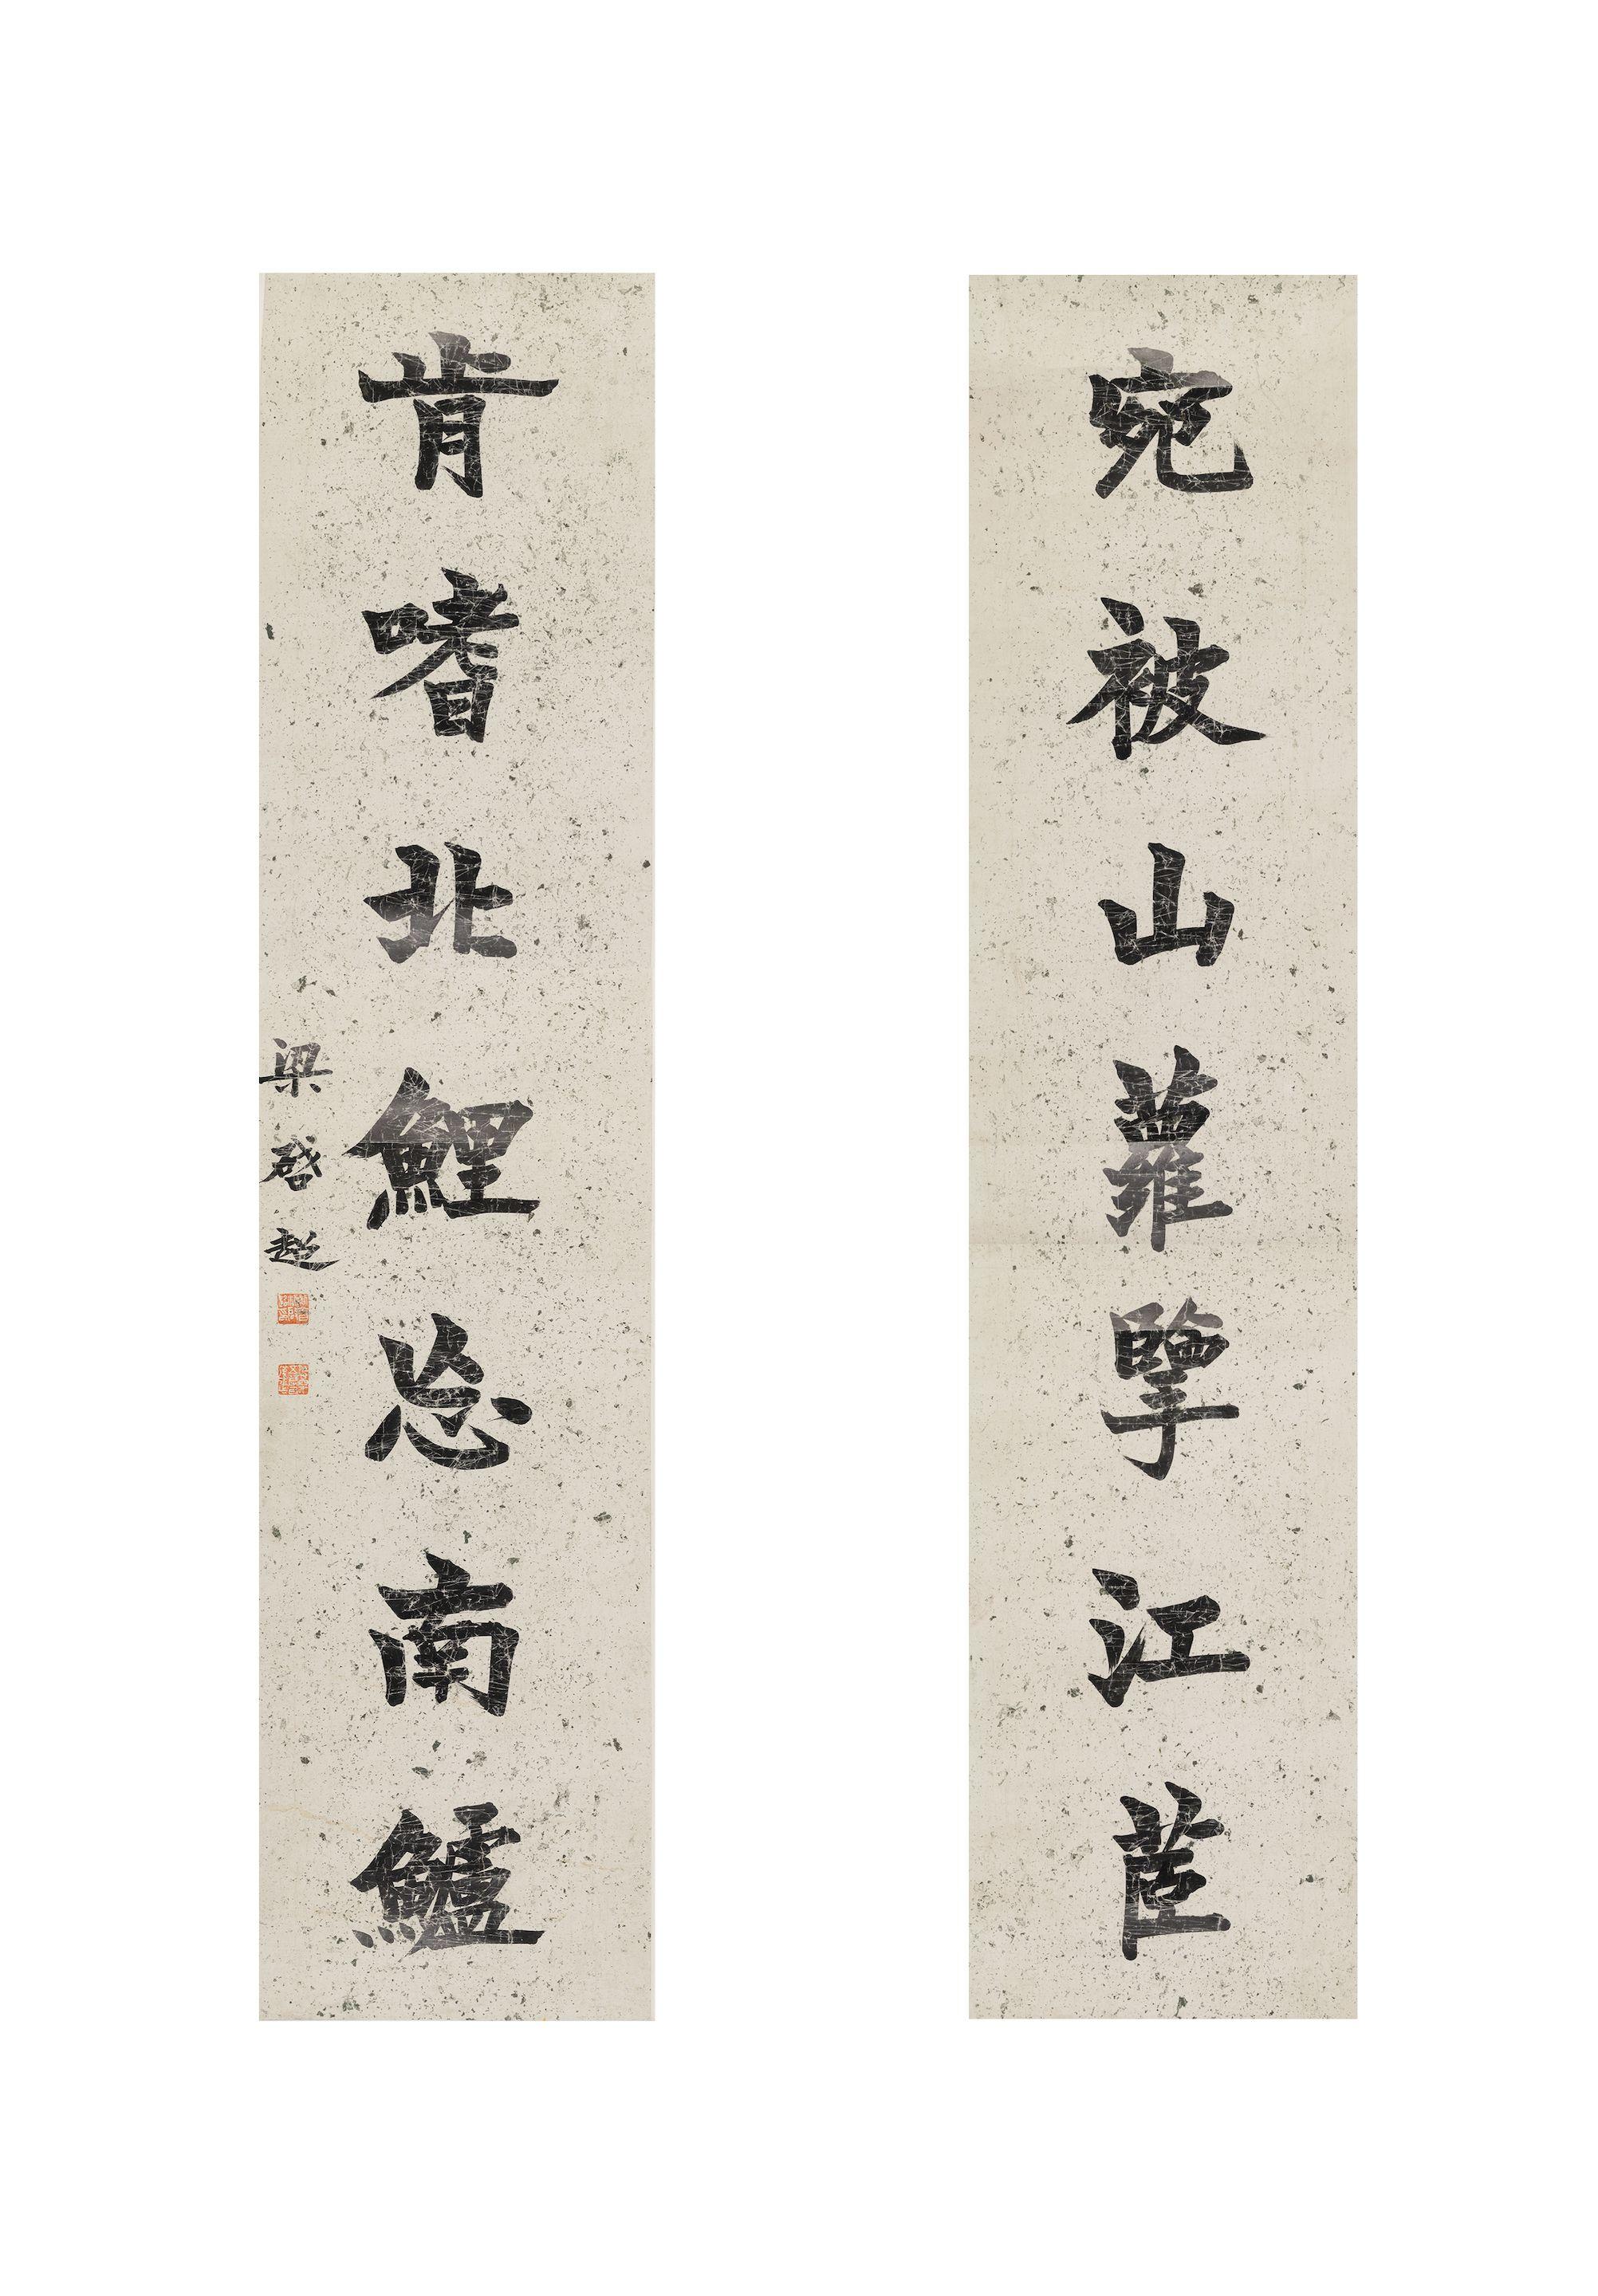 宛被山蘿擥江茝
肯嗜北鯉忘南鱸
梁啓超